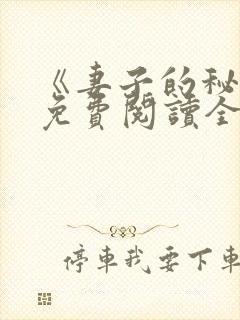 《妻子的秘
免費閱讀全
停車我要下車